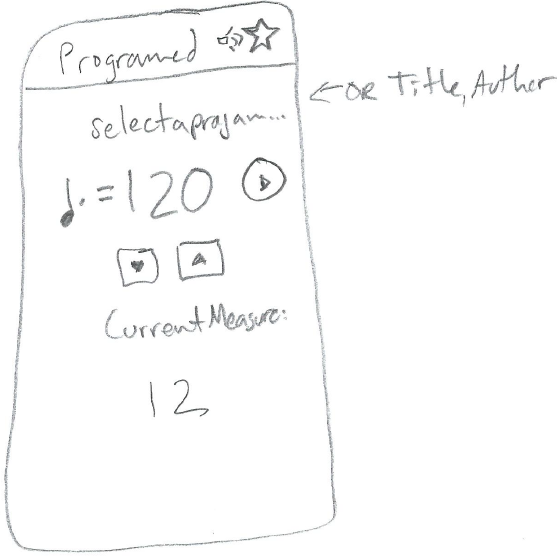 Programed
← OR Title, Author
selectaprogam...
♩. = 120
Current Measure:
12